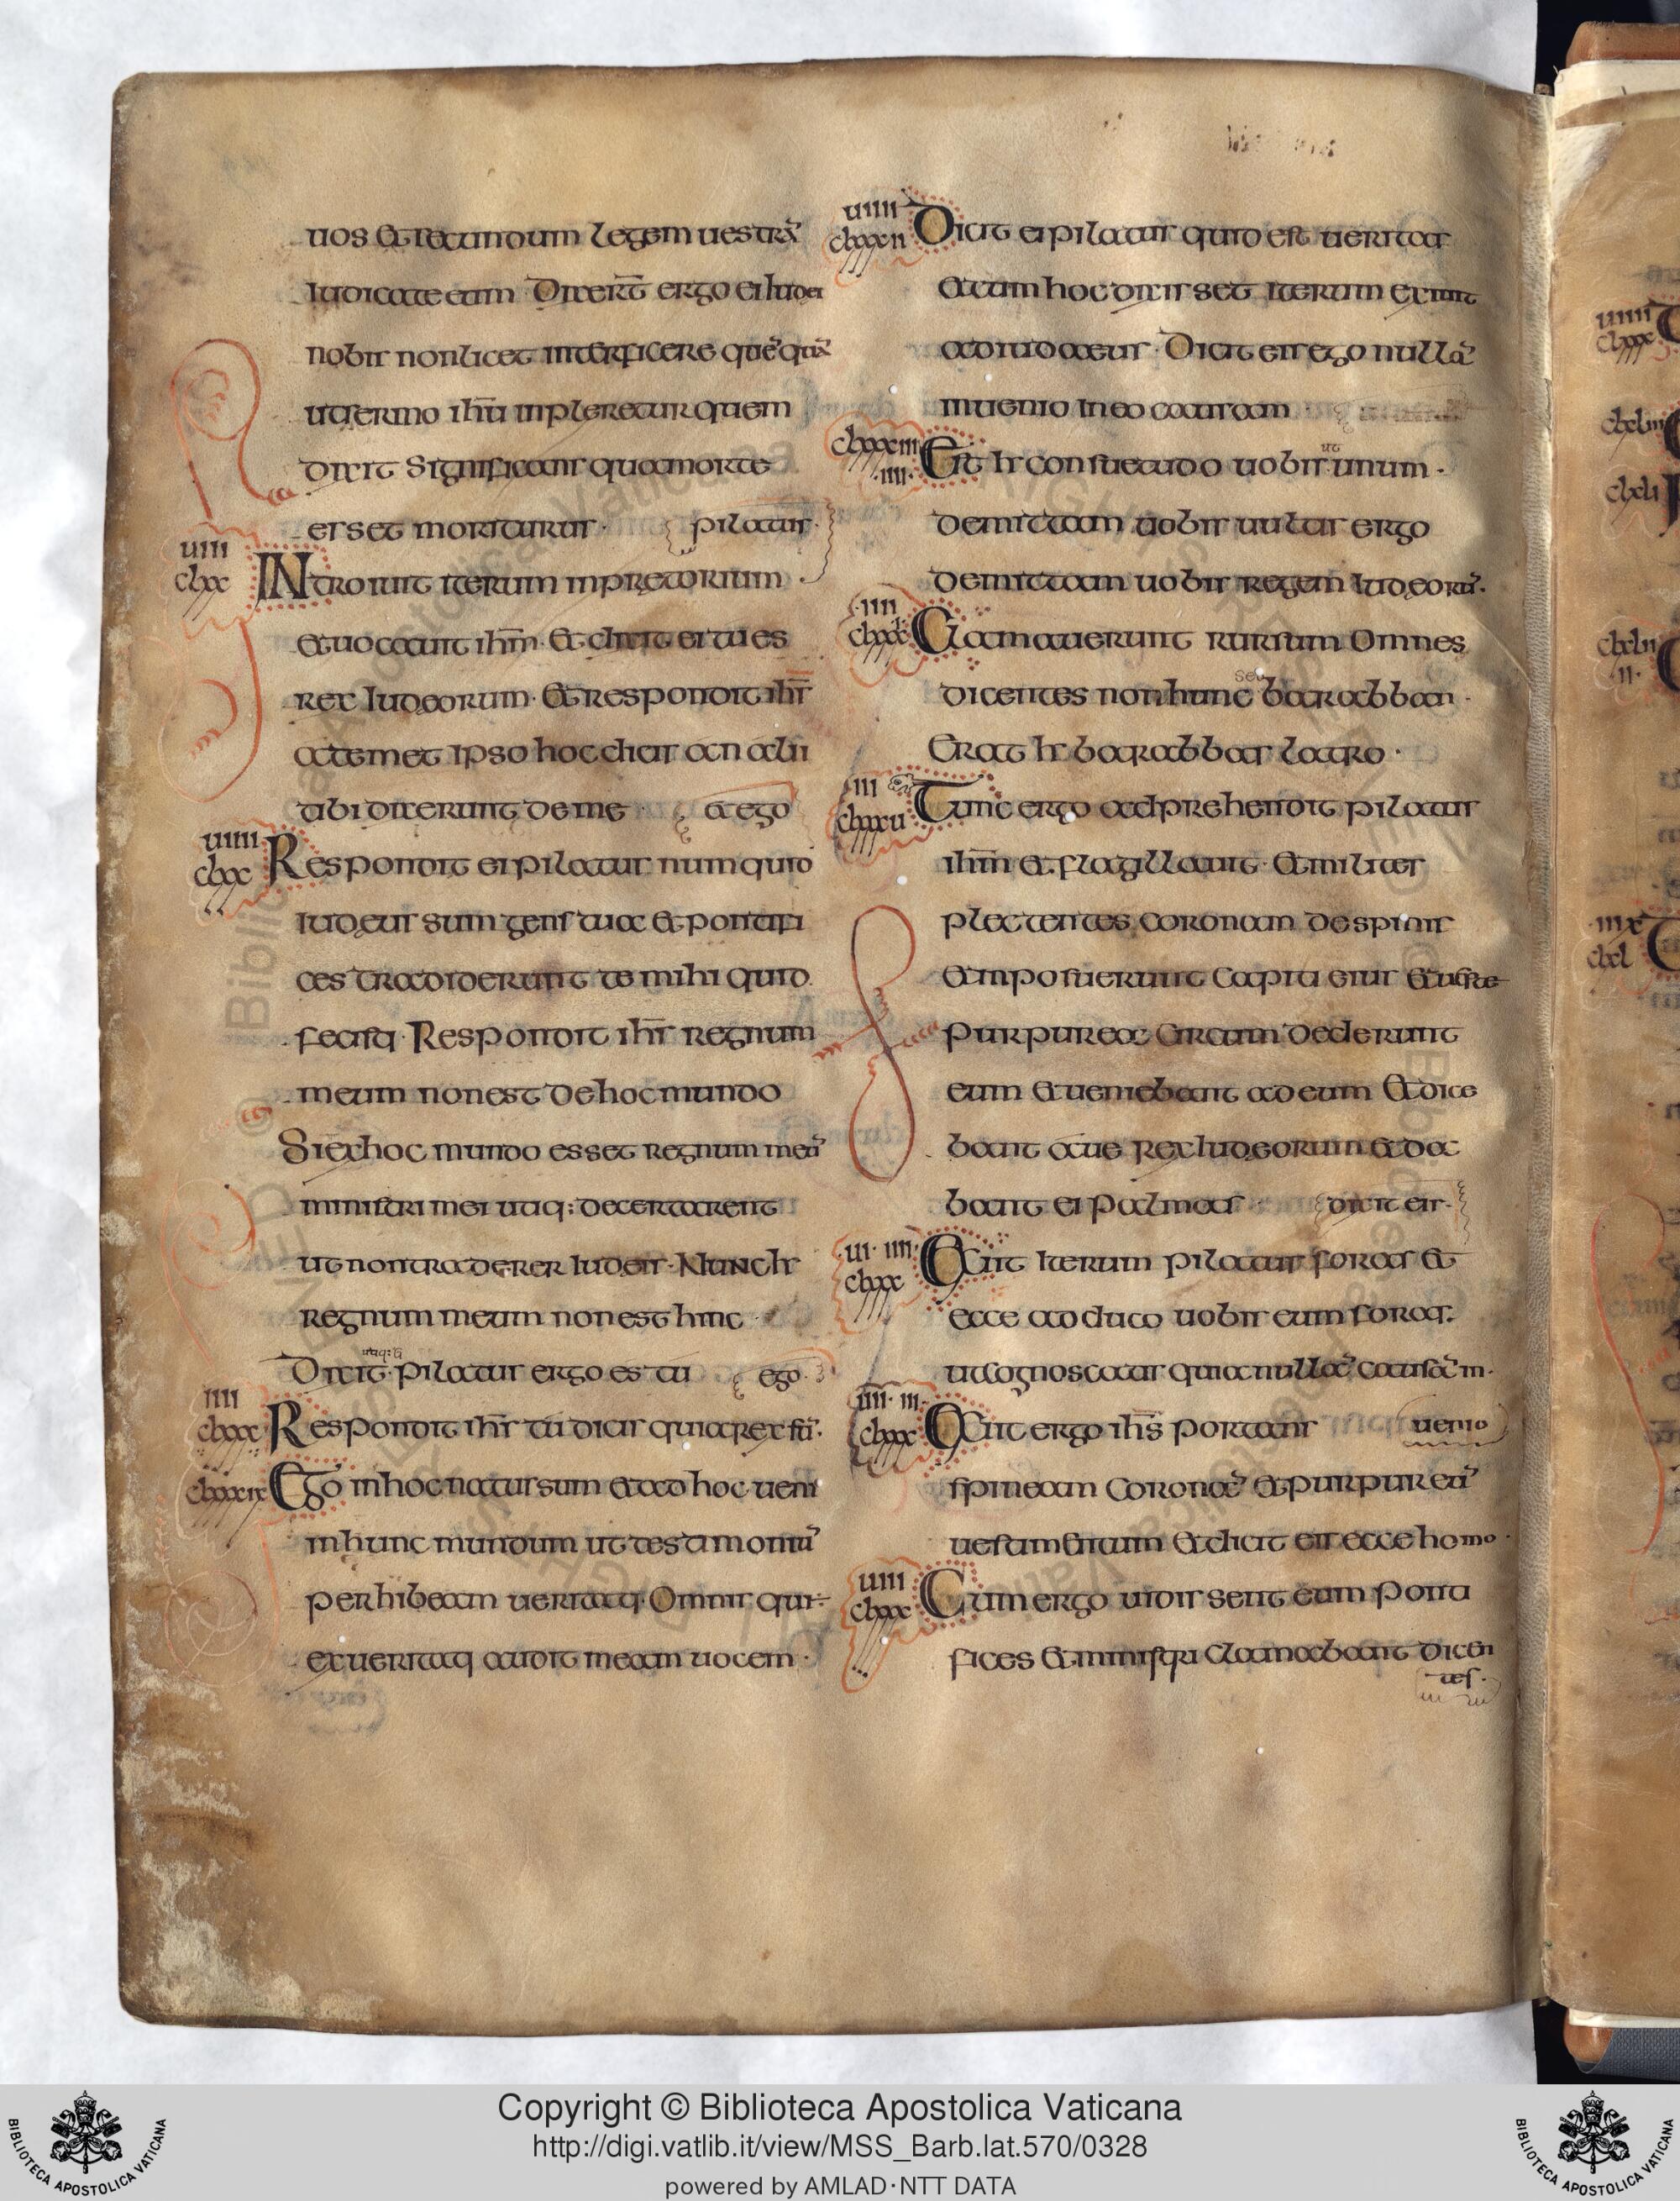 uos et secundum legem uestrã
iudicate eum Dixer̃t ergo ei iudei
nobis non licet interficere quẽquã
ut sermo ihũ inpleretur quem
dixit significans qua morte
esset moriturus · pilatus ·
uiiii
clxx
INtroiuit iterum in pretorium
et uocauit ihm̃ · et dicit ei tu es
rex iudeorum · et respondit ihs̃
a temet ipso hoc dicis an alii
tibi dixerunt de me et ego
uiiii
clxx
Respondit ei pilatus numquid
iudeus sum gens tua et pontifi
ces tradiderunt te mihi quid
fecisti · Respondit ihs̃ regnum
meum non est de hoc mundo
Si ex hoc mundo esset regnum meũ
ministri mei utiq: decertarent
ut non traderer iudeis · Nunc h̵
regnum meum non est hinc
utiq:
Dixit pilatus ergo es tu ego
iiii
clxxx
Respondit ihs̃ tu dicis quia rex sũ ·
clxxxix
Ego in hoc natus sum et ad hoc ueni
in hunc mundum ut testimoniũ
perhibeam ueritati · Omnis qui ÷
ex ueritati audit meam uocem ·
uiiii
clxxxii
Dicit ei pilatus quid est ueritas
et cum hoc dixisset iterum exiuit
ad iudaeus · Dicit eis ego nullã
inuenio in eo causam ·
clxxxiii
· iiii ·
ut
Est h̵ consuetudo uobis unum ·
demittam uobis uultis ergo
demittam uobis regem iudeorũ ·
· iiii
clxxx
Clamauerunt rursum omnes
sed
dicentes non hunc barabban ·
Erat h̵ barabbas latro ·
iii
clxxxu
Tunc ergo adprehendit pilatus
ihm̃ et flagillauit · et milites
plectentes coronam de spinis
et imposuerunt capiti eius et ueste
purpurea circumdederunt
eum et ueniebant ad eum et dice
bant aue rex iudeorum et da
bant ei palmas · dicit eis ·
· iii · iiii ·
clxxx
Exiit iterum pilatus foras et
ecce adduco uobis eum foras ·
ut cognoscatis quia nullã causã in ·
iiii · iii ·
clxxx
Exiit ergo ihs̃ portans uenio
spineam coronã et purpureũ
uestimentum et dicit eis ecce homo ·
uiiii
clxxx
Cum ergo uidissent eum ponti
fices et ministri clamabant dicen
tes ·
Copyright © Biblioteca Apostolica Vaticana
http://digi.vatlib.it/view/MSS_Barb.lat.570/0328
powered by AMLAD·NTT DATA
BIBLIOTECA APOSTOLICA VATICANA
BIBLIOTECA APOSTOLICA VATICANA